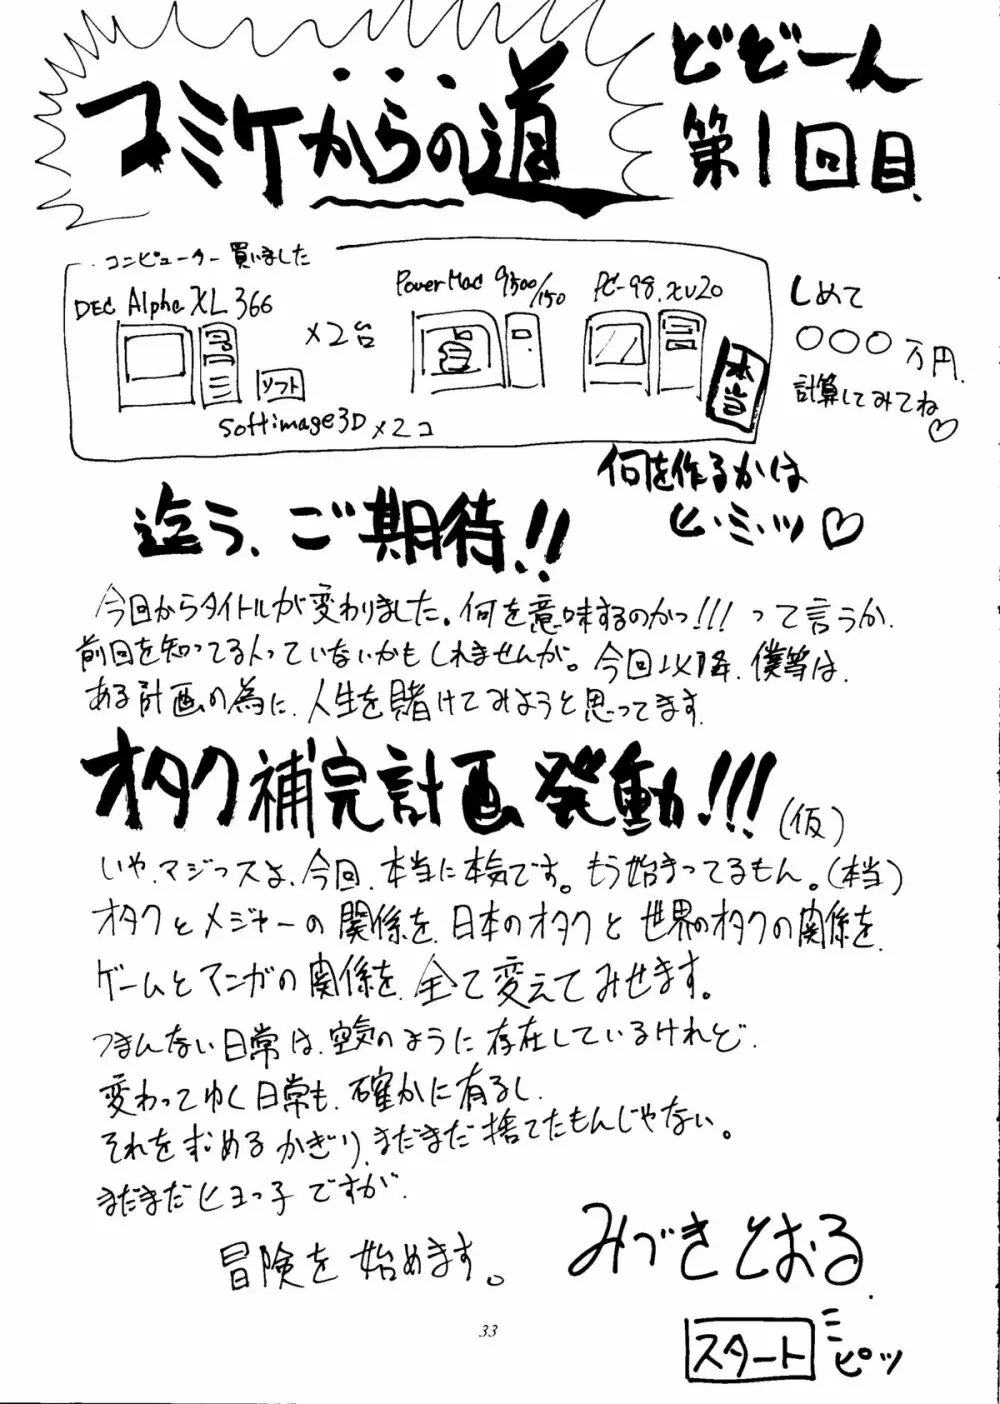 コミケからの道
どどーん
第1回目
コンピューター買いました
DEC Alpha XL 366
×2台
PowerMac 9500/150
PC-98. XV20
ソフト
Softimage3D ×2コ
本当
しめて
○○○万円.
計算してみてね♡
何を作るかは
ヒ・ミ・ツ♡
迄う、ご期待!!
今回からタイトルが変わりました。何を意味するのかっ!!!って言うか.
前回を知ってる人っていないかもしれませんが。今回以降、僕等は、
ある計画の為に、人生を賭けてみようと思ってます.
オタク補完計画発動!!!(仮)
いや、マジっスよ、今回、本当に本気です。もう始まってるもん。(本当)
オタクとメジャーの関係を、日本のオタクと世界のオタクの関係を、
ゲームとマンガの関係を、全て変えてみせます。
つまんない日常は、空気のように存在しているけれど、
変わってゆく日常も、確かに有るし、
それを求めるかぎり、まだまだ捨てたもんじゃない。
まだまだヒヨっ子ですが、
冒険を始めます。
みづきとおる.
スタート
ピッ
33